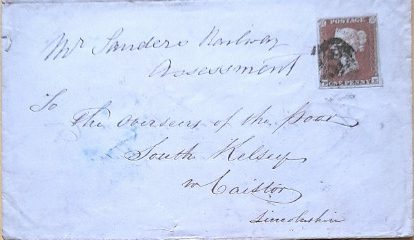 Mr Sanders Railway
Assessment
To
The overseers of the Poor
South Kelsey
Caistor
Lincolnshire
POSTAGE
ONE PENNY